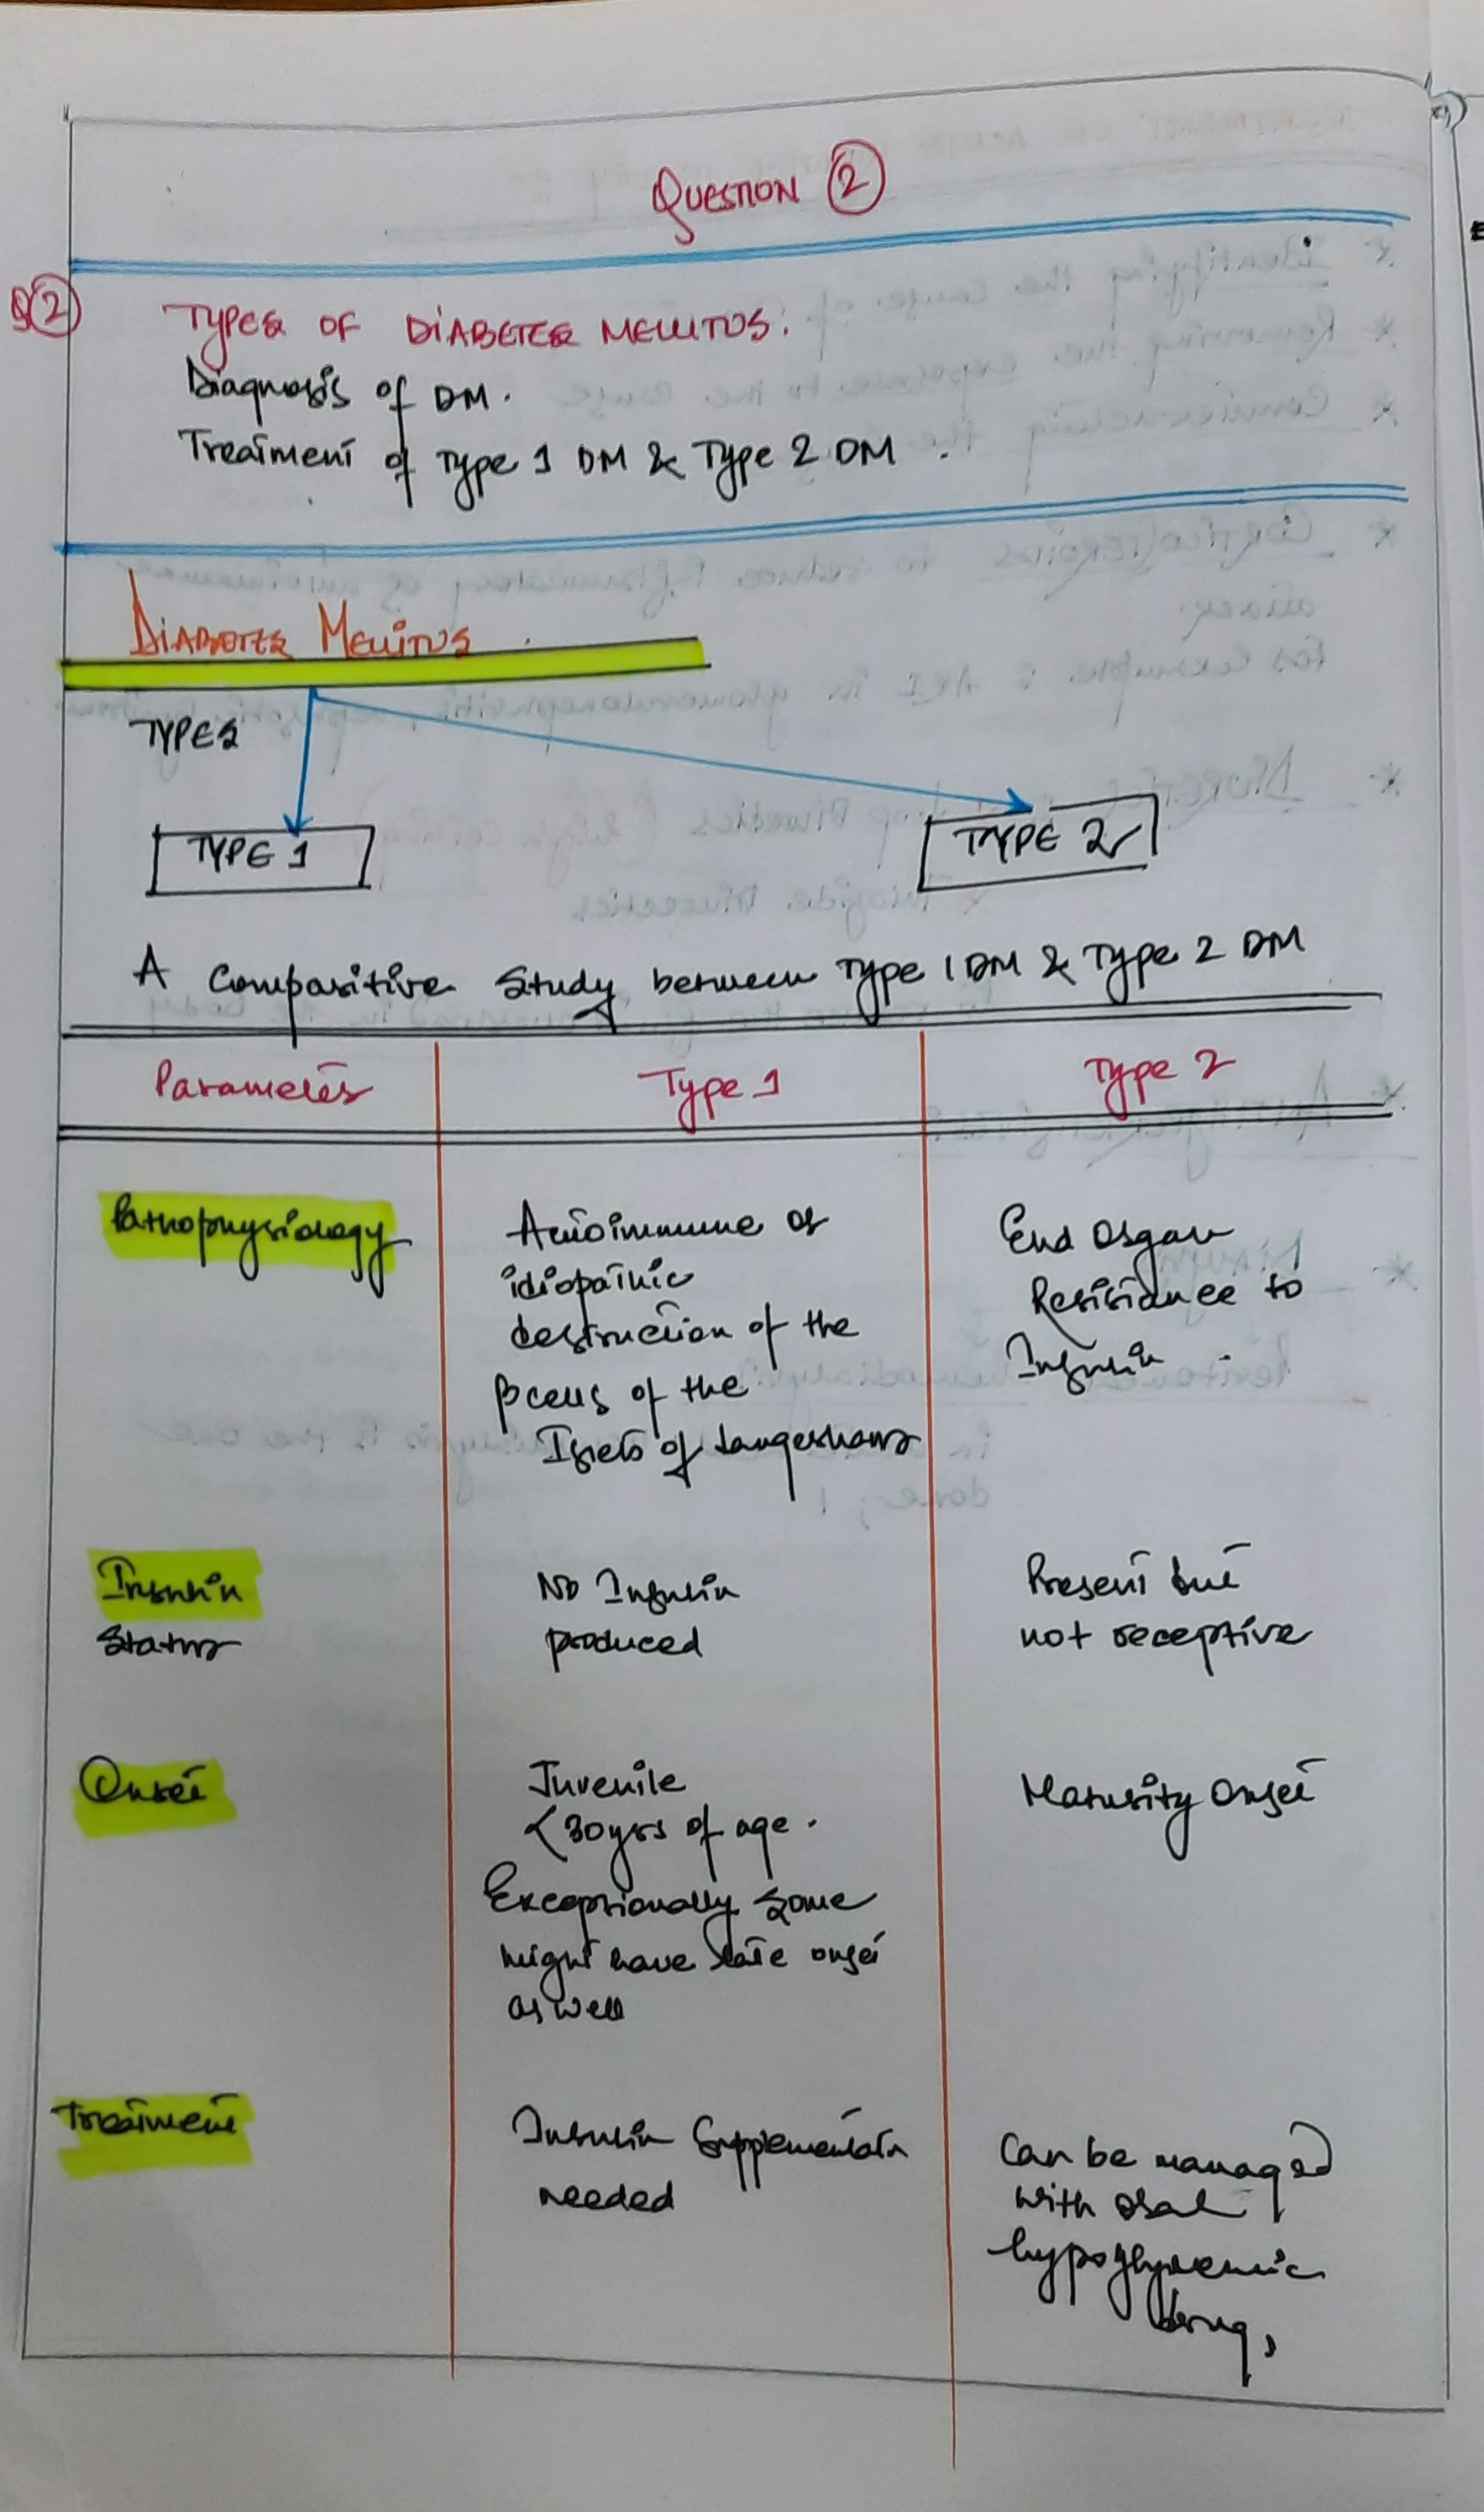 QUESTION 2
Q2 TYPES OF DIABETES MELLITUS.
Diagnosis of DM.
Treatment of Type 1 DM & Type 2 DM.
DIABETES MELLITUS
TYPES
TYPE 1
TYPE 2
A Comparitive Study between Type 1 DM & Type 2 DM
Parameters
Type 1
Type 2
Pathophysiology
Autoimmune or
idiopathic
destruction of the
β cells of the
Islets of Langerhans
End Organ
Resistance to
Insulin
Insulin
Status
No Insulin
produced
Present but
not receptive
Onset
Juvenile
<30yrs of age.
Exceptionally some
might have late onset
as well
Maturity Onset
Treatment
Insulin
needed
Can be managed
with oral
hypoglycemic
drug,